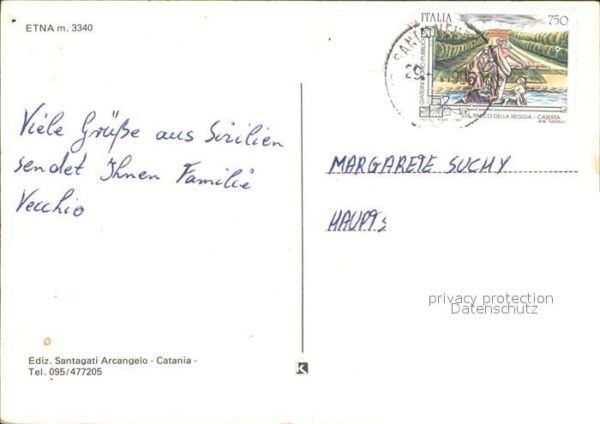 ETNA m. 3340
ITALIA 750
GIARDINI STORICI PUBBLICI
PARCO DELLA REGGIA - CASERTA
Viele Grüße aus Sizilien
sendet Ihnen Familie
Vecchio
MARGARETE SUCHY
HAUPTs
privacy protection
Datenschutz
Ediz. Santagati Arcangelo - Catania -
Tel. 095/477205
K